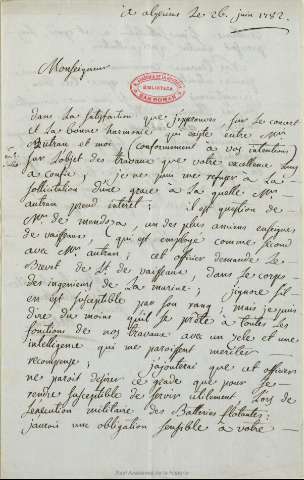 à algeciras Le 26. juin 1782.
Monseigneur
R. ACADEMIA DE LA HISTORIA
BIBLIOTECA
SAN ROMAN
Dans La Satisfaction que j'éprouve sur Le concert
et La bonne harmonie qui existe entre Mr.
autran et moi (conformement à vos intentions)
sur L'objet des travaux que votre excellence nous
a confié; je ne puis me refuser à La
sollicitation d'une grace à La quelle Mr.
autran prend interet; il est question de
Mr. de mendoza, un des plus anciens enseignes
de vaisseau, (qui est employé comme second
avec Mr. autran; cet officier demande Le
Brevet de Lt. de vaisseau, dans Le corps
des ingenieurs de La marine; j'ignore s'il
en est susceptible par son rang; mais je puis
dire du moins qu'il se prête à toutes Les
fonctions de nos travaux avec un zele et une
intelligence qui me paroissent meriter
recompense j'ajouterai que cet officier
ne paroit desirer ce grade que pour se
rendre susceptible de servir utilement, Lors de
L'execution militaire des Batteries flotantes;
j'aurois une obligation sensible à votre
Real Academia de la Historia